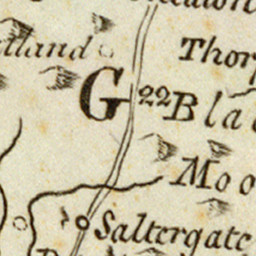 lland
Thor
G 22 Bla
Moo
Saltergate